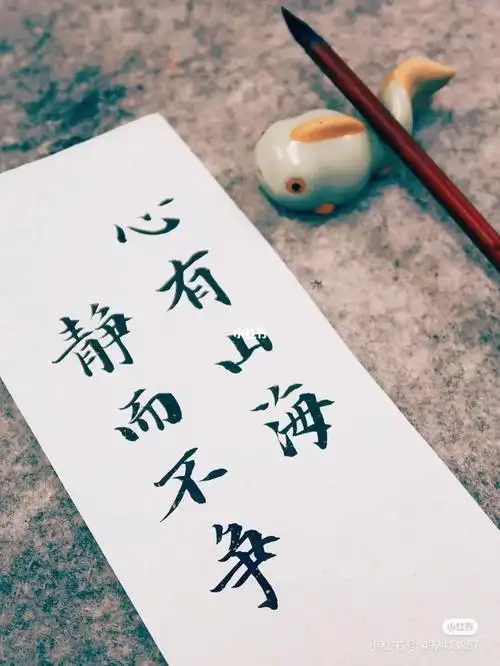 心有山海
静而不争
小红书
小红书
小红书号:492413087